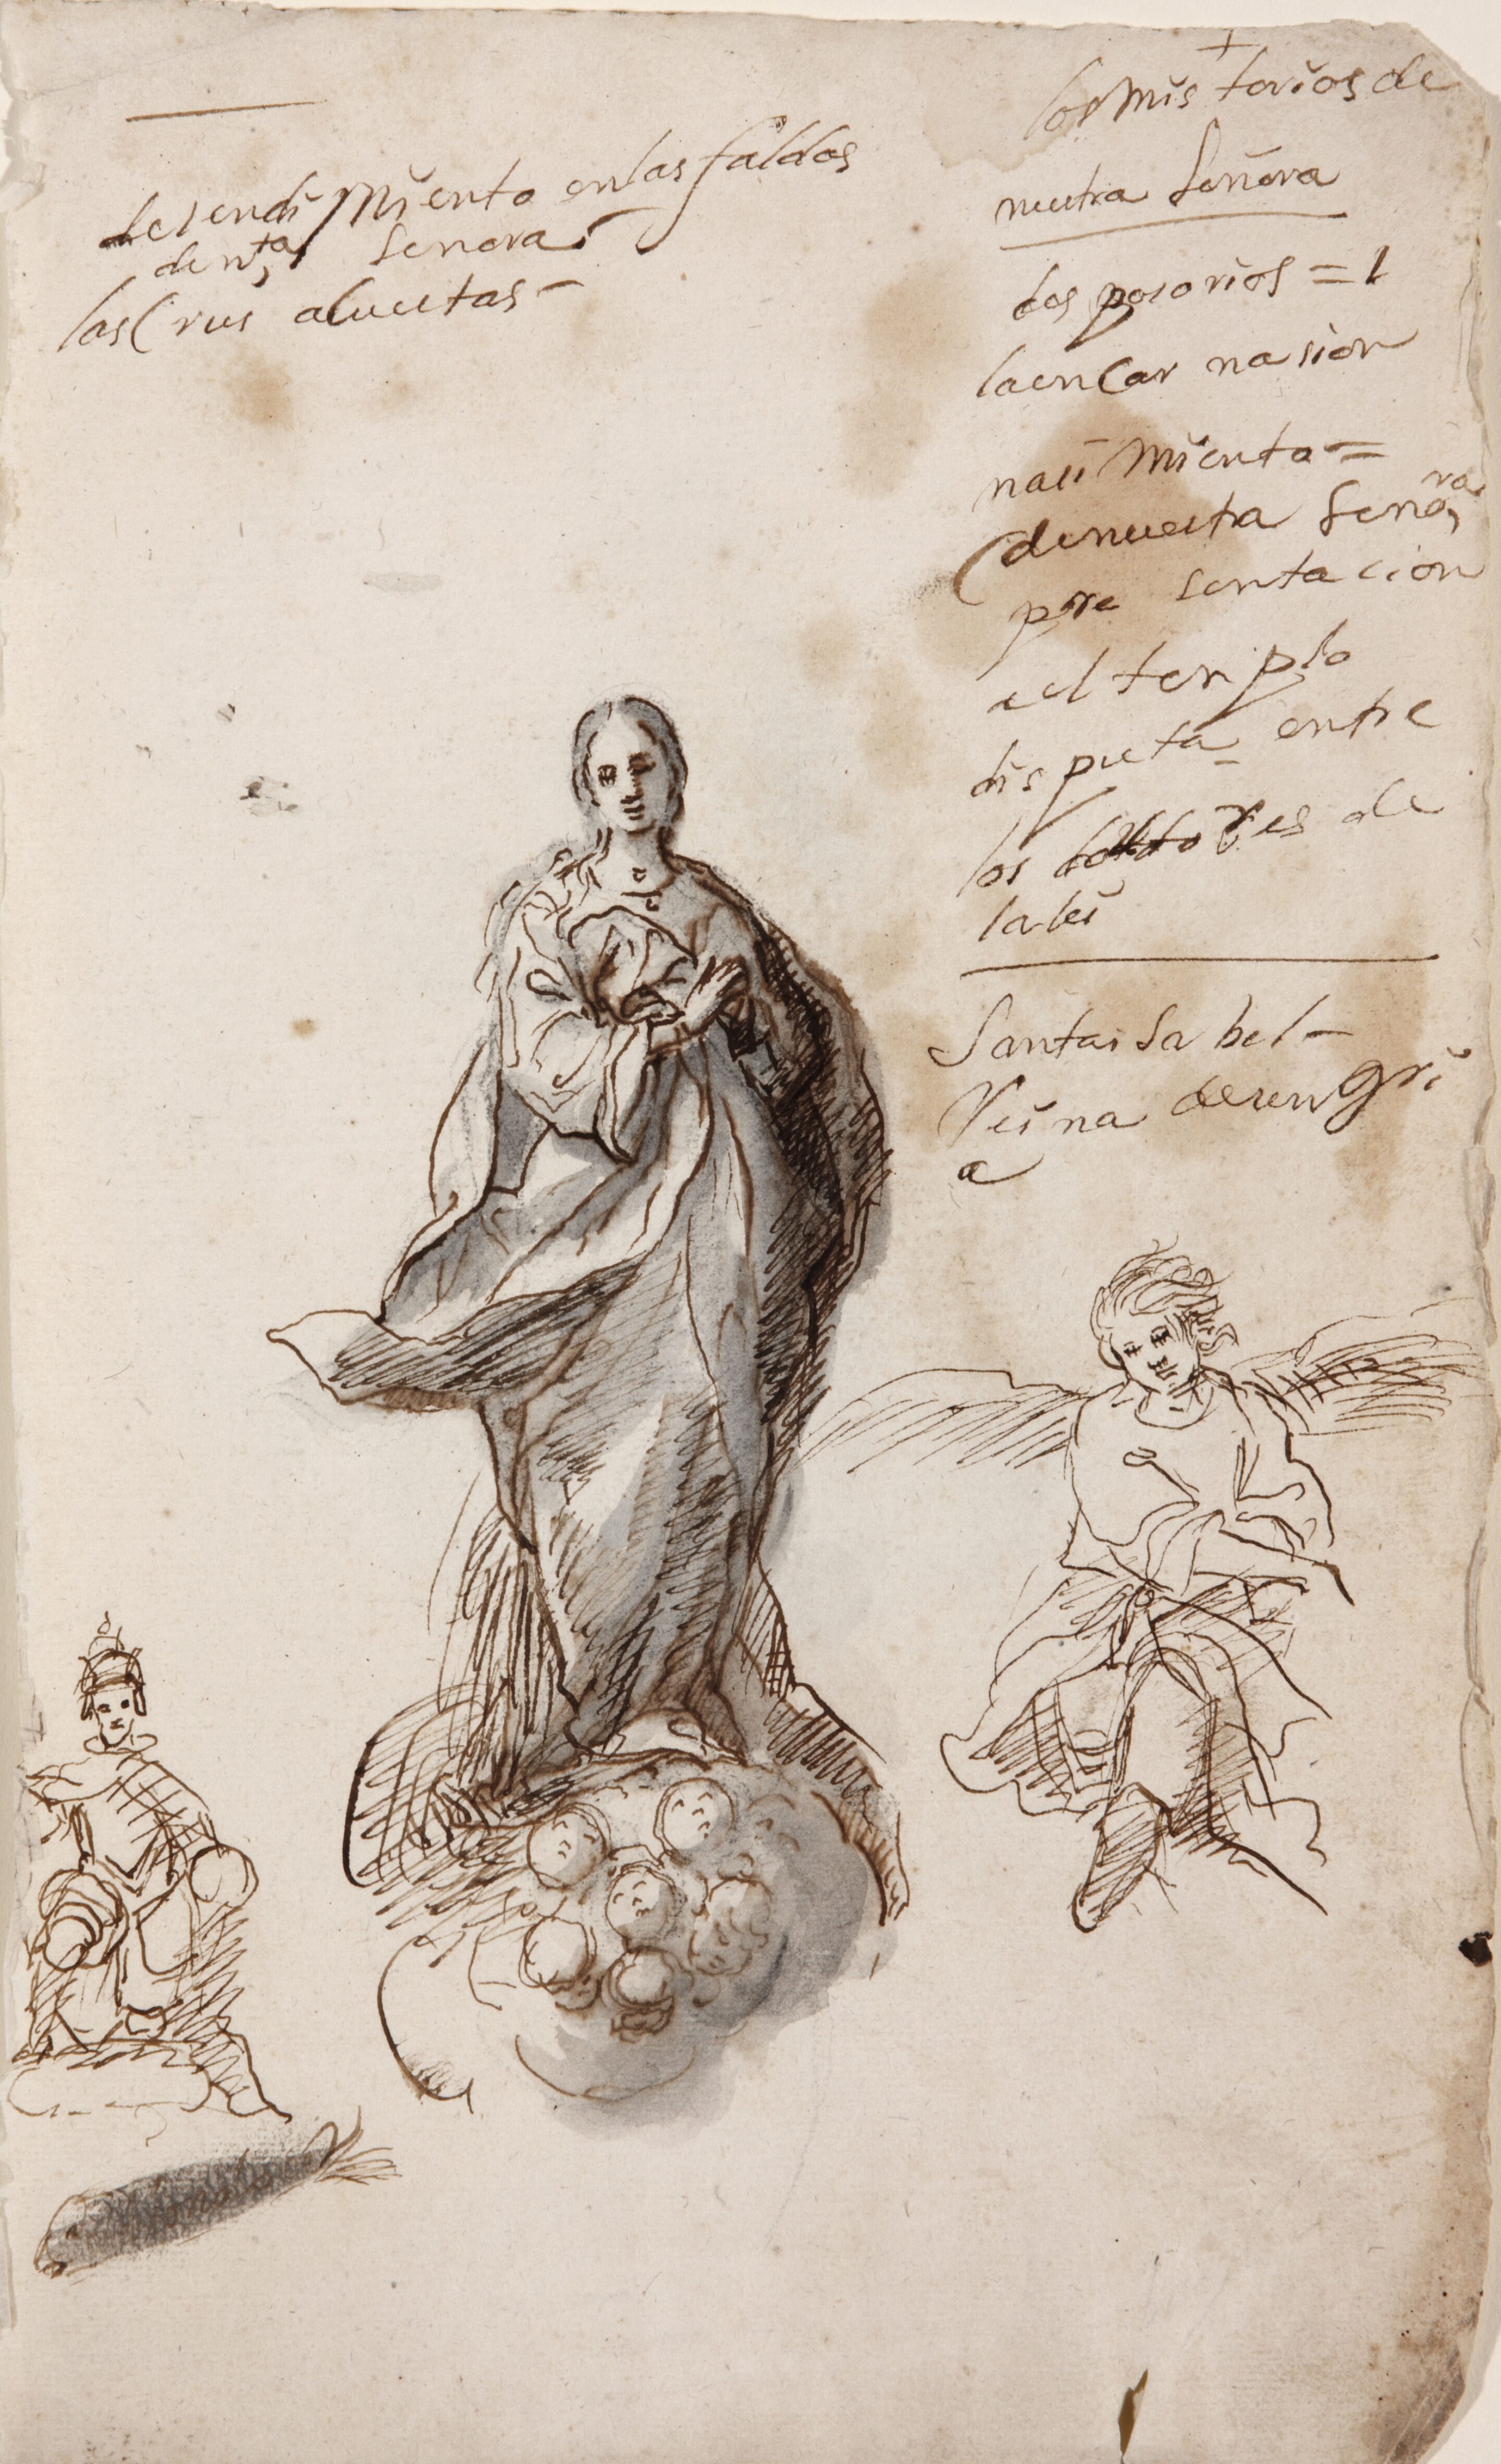 desendimiento en las faldas
de nta, Senora
las Crus alueltas -
+
los Misterios de
nuetra Señora
des posorios = 1
la enCar nasion
nasi Miento =
de nuestra Señora
pre sentacion
a el templo
dis puta entre
los doctores de
la lei
Santa iSa bel -
Reina de sen gri
a